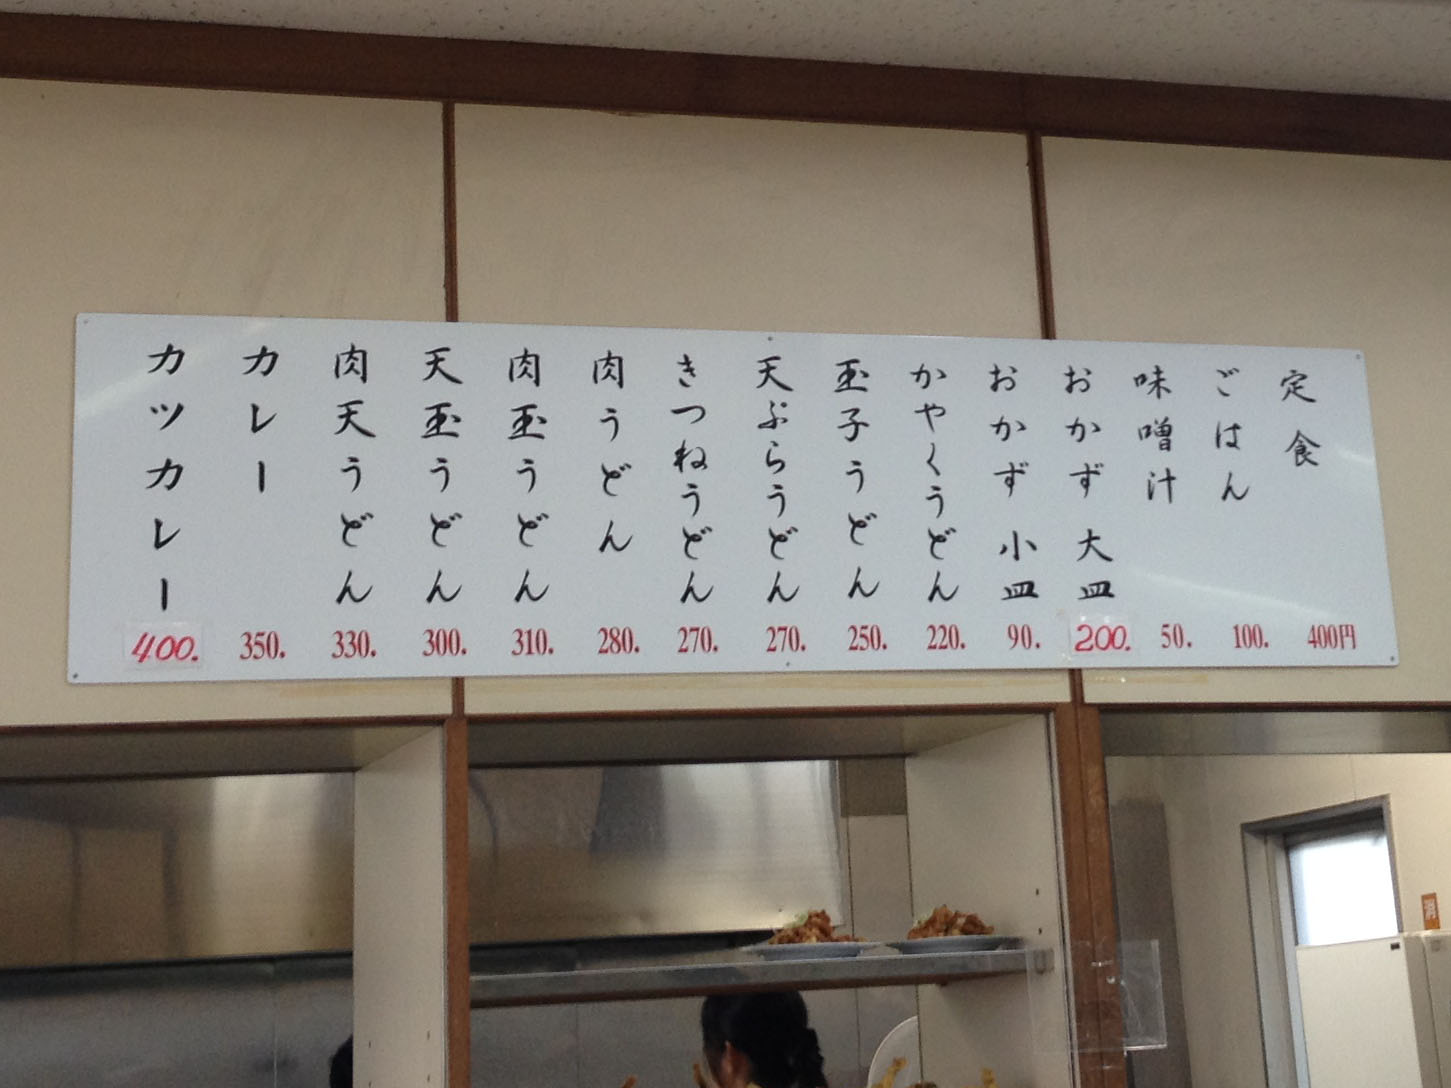 定食 400円
ごはん 100.
味噌汁 50.
おかず 大皿 200.
おかず 小皿 90.
かやくうどん 220.
玉子うどん 250.
天ぷらうどん 270.
きつねうどん 270.
肉うどん 280.
肉玉うどん 310.
天玉うどん 300.
肉天うどん 330.
カレー 350.
カツカレー 400.
消